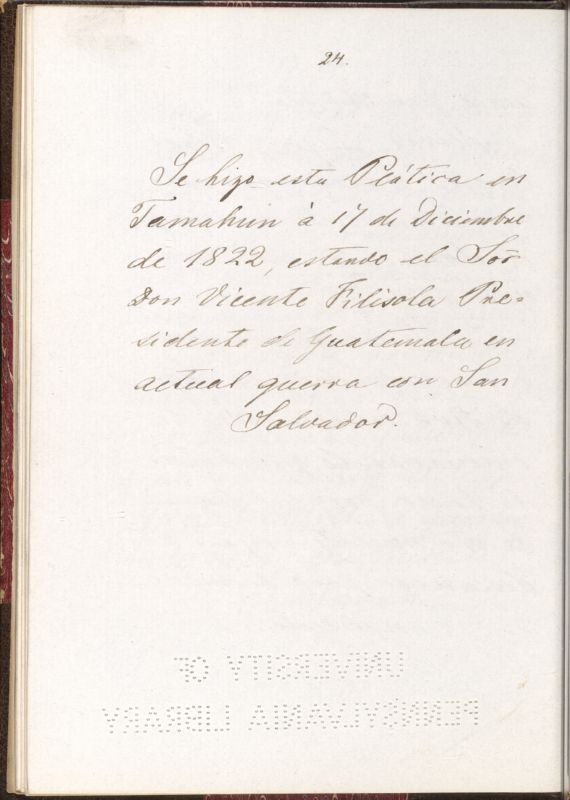 24.
Se hizo esta Plática en
Tamahun à 17 de Diciembre
de 1822, estando el Sor̃
Don Vicente Filisola Pre=
sidente de Guatemala en
actual guerra con San
Salvador.
UNIVERSITY OF
PENNSYLVANIA LIBRARY